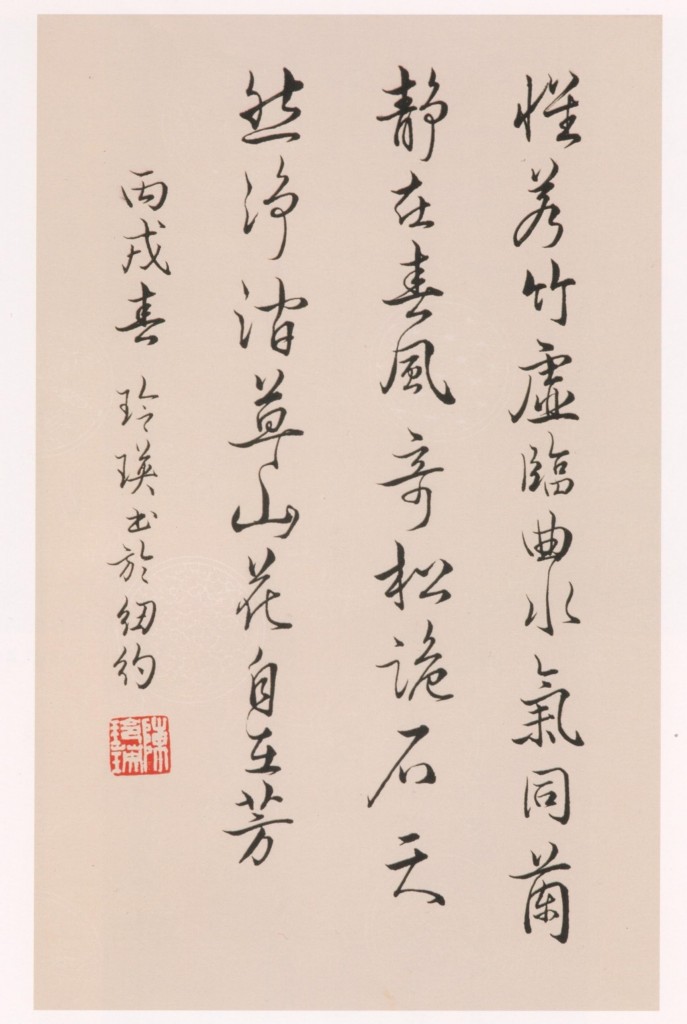 懷若竹虛臨曲水氣同蘭
静在春風奇松詭石天
然淨澗草山花自在芳
丙戌春 玲瑛书於紐約